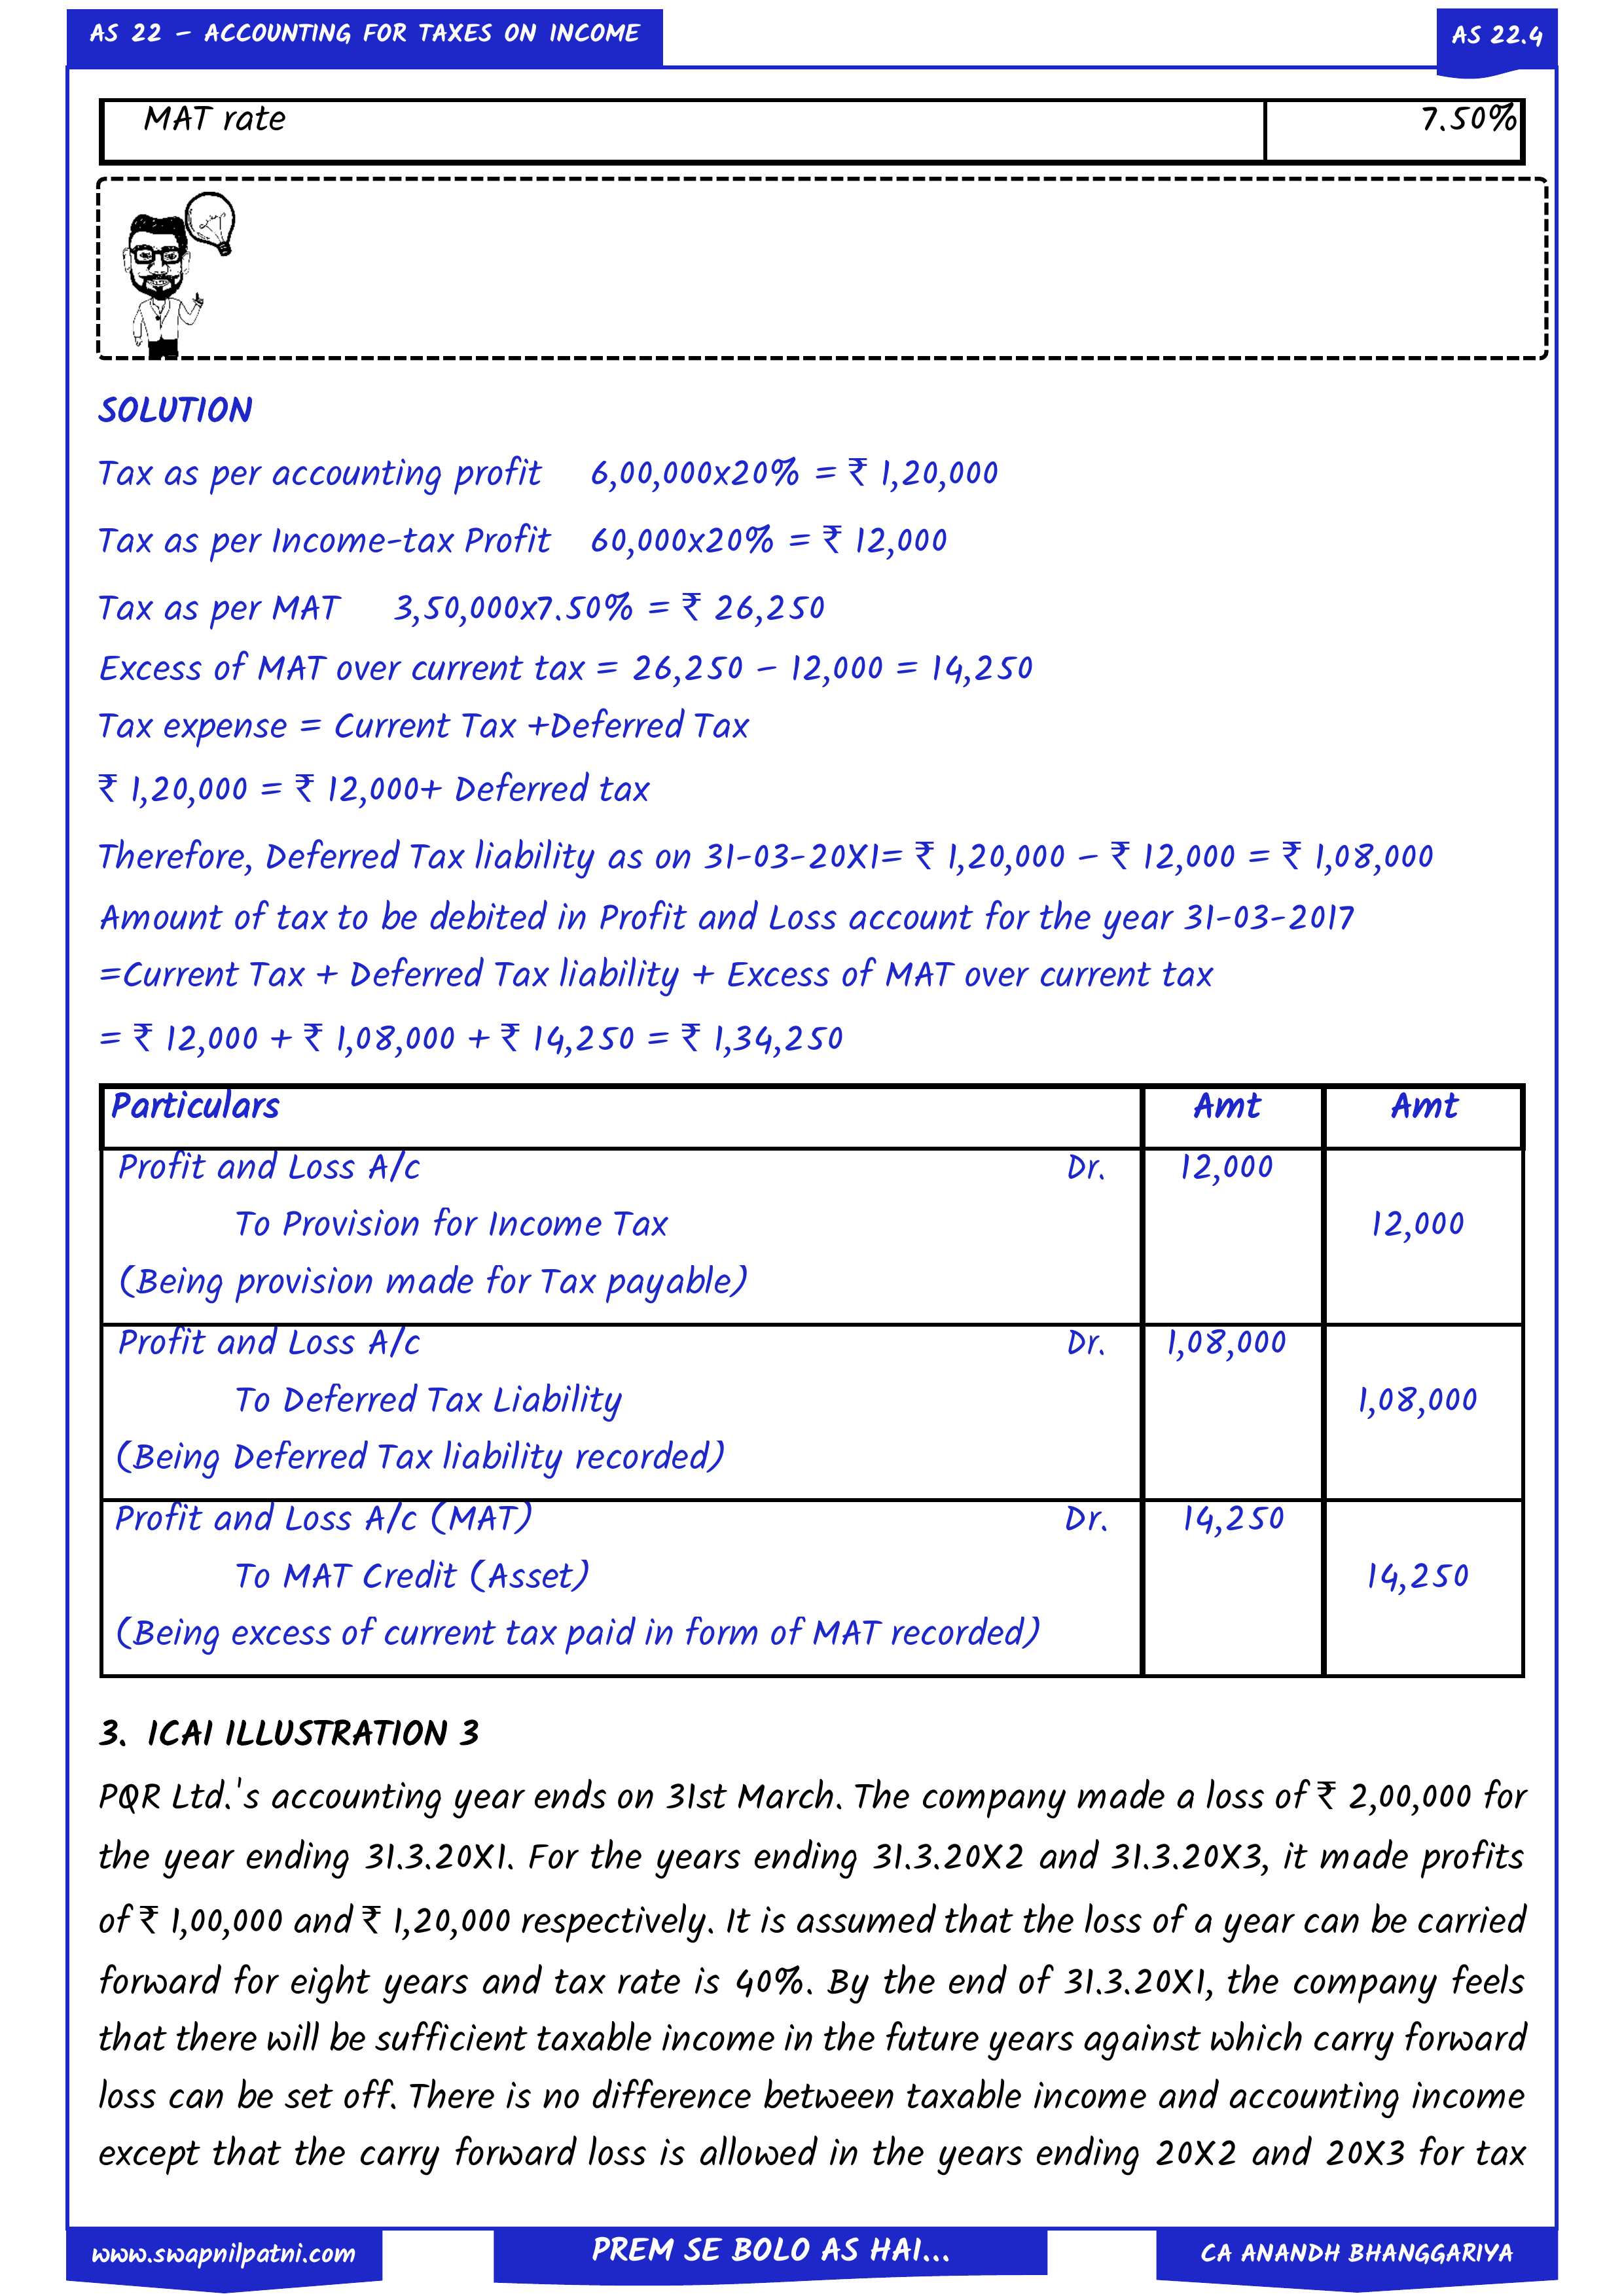 AS 22 – ACCOUNTING FOR TAXES ON INCOME
AS 22.4
MAT rate 7.50%
SOLUTION
Tax as per accounting profit 6,00,000x20% = ₹ 1,20,000
Tax as per Income-tax Profit 60,000x20% = ₹ 12,000
Tax as per MAT 3,50,000x7.50% = ₹ 26,250
Excess of MAT over current tax = 26,250 – 12,000 = 14,250
Tax expense = Current Tax +Deferred Tax
₹ 1,20,000 = ₹ 12,000+ Deferred tax
Therefore, Deferred Tax liability as on 31-03-20X1= ₹ 1,20,000 – ₹ 12,000 = ₹ 1,08,000
Amount of tax to be debited in Profit and Loss account for the year 31-03-2017
=Current Tax + Deferred Tax liability + Excess of MAT over current tax
= ₹ 12,000 + ₹ 1,08,000 + ₹ 14,250 = ₹ 1,34,250
Particulars Amt Amt
Profit and Loss A/c Dr. 12,000
To Provision for Income Tax 12,000
(Being provision made for Tax payable)
Profit and Loss A/c Dr. 1,08,000
To Deferred Tax Liability 1,08,000
(Being Deferred Tax liability recorded)
Profit and Loss A/c (MAT) Dr. 14,250
To MAT Credit (Asset) 14,250
(Being excess of current tax paid in form of MAT recorded)
3. ICAI ILLUSTRATION 3
PQR Ltd.'s accounting year ends on 31st March. The company made a loss of ₹ 2,00,000 for
the year ending 31.3.20X1. For the years ending 31.3.20X2 and 31.3.20X3, it made profits
of ₹ 1,00,000 and ₹ 1,20,000 respectively. It is assumed that the loss of a year can be carried
forward for eight years and tax rate is 40%. By the end of 31.3.20X1, the company feels
that there will be sufficient taxable income in the future years against which carry forward
loss can be set off. There is no difference between taxable income and accounting income
except that the carry forward loss is allowed in the years ending 20X2 and 20X3 for tax
www.swapnilpatni.com
PREM SE BOLO AS HAI...
CA ANANDH BHANGGARIYA